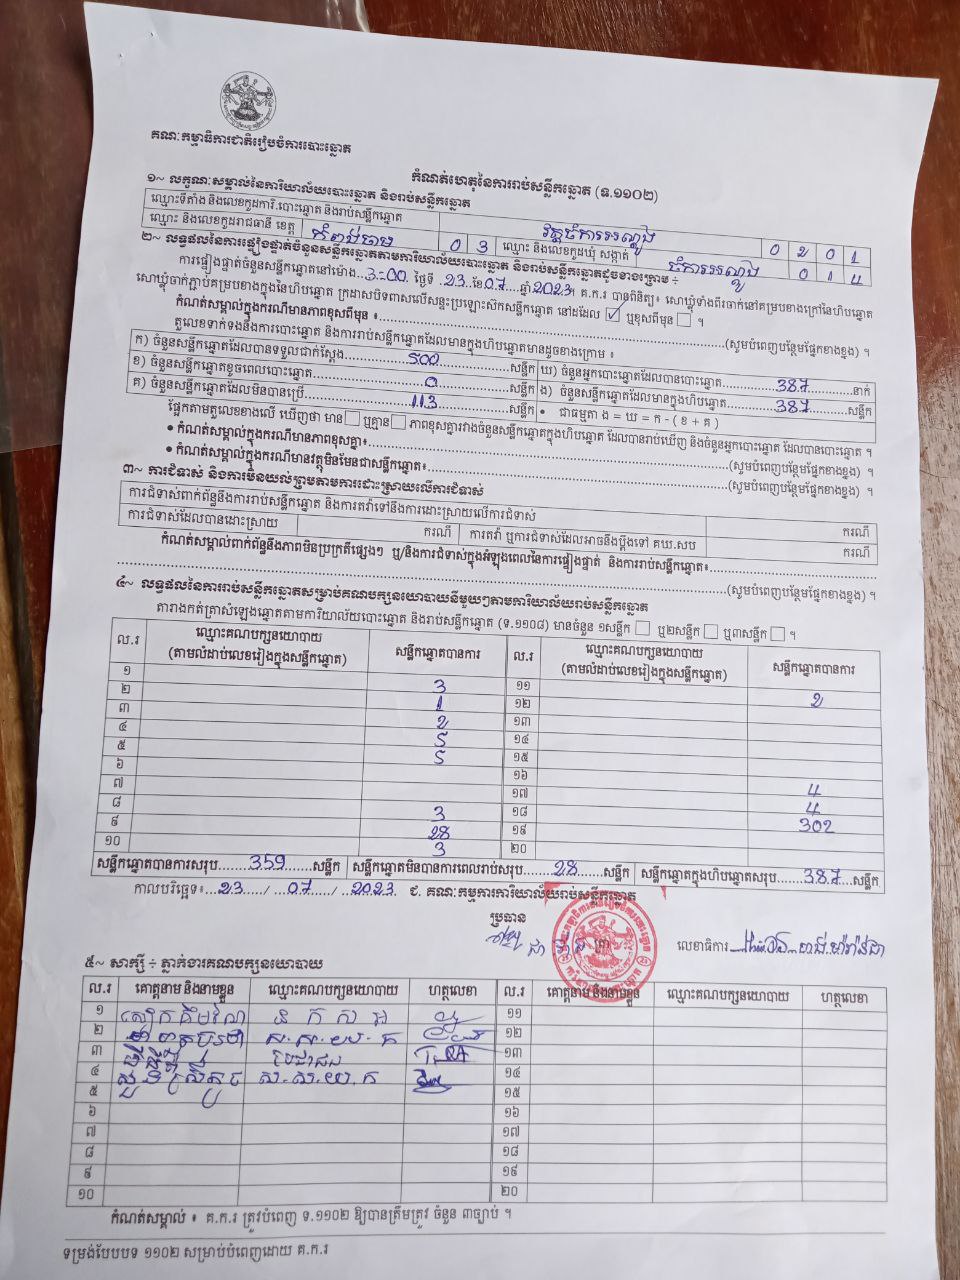 គណៈកម្មាធិការជាតិរៀបចំការបោះឆ្នោត
កំណត់ហេតុនៃការរាប់សន្លឹកឆ្នោត (ទ.១១០២)
១~ លក្ខណៈសម្គាល់នៃការិយាល័យបោះឆ្នោត និងរាប់សន្លឹកឆ្នោត
ឈ្មោះទីតាំង និងលេខកូដការិ.បោះឆ្នោត និងរាប់សន្លឹកឆ្នោត វត្តចំការអណ្តូង 0 2 0 1
ឈ្មោះ និងលេខកូដរាជធានី ខេត្ត កំពង់ចាម 0 3 ឈ្មោះ និងលេខកូដឃុំ សង្កាត់ ចំការអណ្តូង 0 1 4
២~ លទ្ធផលនៃការផ្ទៀងផ្ទាត់ចំនួនសន្លឹកឆ្នោតតាមការិយាល័យបោះឆ្នោត និងរាប់សន្លឹកឆ្នោតដូចខាងក្រោម ÷
ការផ្ទៀងផ្ទាត់ចំនួនសន្លឹកឆ្នោតនៅម៉ោង..3:00 ថ្ងៃទី 23 ខែ07 ឆ្នាំ2023។ គ.ក.រ បានពិនិត្យ៖ សោឃ្លុំទាំងពីរចាក់នៅគម្របខាងក្រៅនៃហិបឆ្នោត
សោឃ្លុំចាក់ភ្ជាប់គម្របខាងក្នុងនៃហិបឆ្នោត ក្រដាសបិទពាសលើសន្ទះប្រឡោះស៊កសន្លឹកឆ្នោត នៅដដែល ☑ ឬខុសពីមុន ☐ ។
កំណត់សម្គាល់ក្នុងករណីមានភាពខុសពីមុន ៖ (សូមបំពេញបន្ថែមផ្នែកខាងខ្នង) ។
តួលេខទាក់ទងនឹងការបោះឆ្នោត និងការរាប់សន្លឹកឆ្នោតដែលមានក្នុងហិបឆ្នោតមានដូចខាងក្រោម ៖
ក) ចំនួនសន្លឹកឆ្នោតដែលបានទទួលជាក់ស្តែង 500 សន្លឹក ឃ) ចំនួនអ្នកបោះឆ្នោតដែលបានបោះឆ្នោត 387 នាក់
ខ) ចំនួនសន្លឹកឆ្នោតខូចពេលបោះឆ្នោត 0 សន្លឹក ង) ចំនួនសន្លឹកឆ្នោតដែលមានក្នុងហិបឆ្នោត 387 សន្លឹក
គ) ចំនួនសន្លឹកឆ្នោតដែលមិនបានប្រើ 113 សន្លឹក • ជាធម្មតា ង = ឃ = ក - ( ខ + គ )
ផ្អែកតាមតួលេខខាងលើ ឃើញថា មាន ☐ ឬគ្មាន ☐ ភាពខុសគ្នារវាងចំនួនសន្លឹកឆ្នោតក្នុងហិបឆ្នោត ដែលបានរាប់ឃើញ និងចំនួនអ្នកបោះឆ្នោត ដែលបានបោះឆ្នោត ។
• កំណត់សម្គាល់ក្នុងករណីមានភាពខុសគ្នា៖ (សូមបំពេញបន្ថែមផ្នែកខាងខ្នង) ។
• កំណត់សម្គាល់ក្នុងករណីមានវត្ថុមិនមែនជាសន្លឹកឆ្នោត៖ (សូមបំពេញបន្ថែមផ្នែកខាងខ្នង) ។
៣~ ការជំទាស់ និងការមិនយល់ព្រមតាមការដោះស្រាយលើការជំទាស់
ការជំទាស់ពាក់ព័ន្ធនឹងការរាប់សន្លឹកឆ្នោត និងការតវ៉ាទៅនឹងការដោះស្រាយលើការជំទាស់ ករណី
ការជំទាស់ដែលបានដោះស្រាយ ករណី ការតវ៉ា ឬការជំទាស់ដែលអាចនឹងប្តឹងទៅ គឃ.សប ករណី
កំណត់សម្គាល់ពាក់ព័ន្ធនឹងភាពមិនប្រក្រតីផ្សេងៗ ឬ/និងការជំទាស់ក្នុងអំឡុងពេលនៃការផ្ទៀងផ្ទាត់ និងការរាប់សន្លឹកឆ្នោត៖
(សូមបំពេញបន្ថែមផ្នែកខាងខ្នង) ។
៤~ លទ្ធផលនៃការរាប់សន្លឹកឆ្នោតសម្រាប់គណបក្សនយោបាយនីមួយៗតាមការិយាល័យរាប់សន្លឹកឆ្នោត
តារាងកត់ត្រាសំឡេងឆ្នោតតាមការិយាល័យបោះឆ្នោត និងរាប់សន្លឹកឆ្នោត (ទ.១១០៨) មានចំនួន ១សន្លឹក ☐ ឬ២សន្លឹក ☐ ឬ៣សន្លឹក ☐ ។
ល.រ ឈ្មោះគណបក្សនយោបាយ (តាមលំដាប់លេខរៀងក្នុងសន្លឹកឆ្នោត) សន្លឹកឆ្នោតបានការ ល.រ ឈ្មោះគណបក្សនយោបាយ (តាមលំដាប់លេខរៀងក្នុងសន្លឹកឆ្នោត) សន្លឹកឆ្នោតបានការ
១ 3 ១១ 2
២ 1 ១២
៣ 2 ១៣
៤ 5 ១៤
៥ 5 ១៥
៦ ១៦
៧ ១៧ 4
៨ 3 ១៨ 4
៩ 28 ១៩ 302
១០ 3 ២០
សន្លឹកឆ្នោតបានការសរុប 359 សន្លឹក សន្លឹកឆ្នោតមិនបានការពេលរាប់សរុប 28 សន្លឹក សន្លឹកឆ្នោតក្នុងហិបឆ្នោតសរុប 387 សន្លឹក
កាលបរិច្ឆេទ៖ 23 / 07 / 2023 ជ. គណៈកម្មការការិយាល័យរាប់សន្លឹកឆ្នោត
ប្រធាន
ត្រា លេខាធិការ
៥~ សាក្សី ÷ ភ្នាក់ងារគណបក្សនយោបាយ
ល.រ គោត្តនាម និងនាមខ្លួន ឈ្មោះគណបក្សនយោបាយ ហត្ថលេខា ល.រ គោត្តនាម និងនាមខ្លួន ឈ្មោះគណបក្សនយោបាយ ហត្ថលេខា
១ ១១
២ ១២
៣ ១៣
៤ ១៤
៥ ១៥
៦ ១៦
៧ ១៧
៨ ១៨
៩ ១៩
១០ ២០
កំណត់សម្គាល់ ៖ គ.ក.រ ត្រូវបំពេញ ទ.១១០២ ឱ្យបានត្រឹមត្រូវ ចំនួន ៣ច្បាប់ ។
ទម្រង់បែបបទ ១១០២ សម្រាប់បំពេញដោយ គ.ក.រ